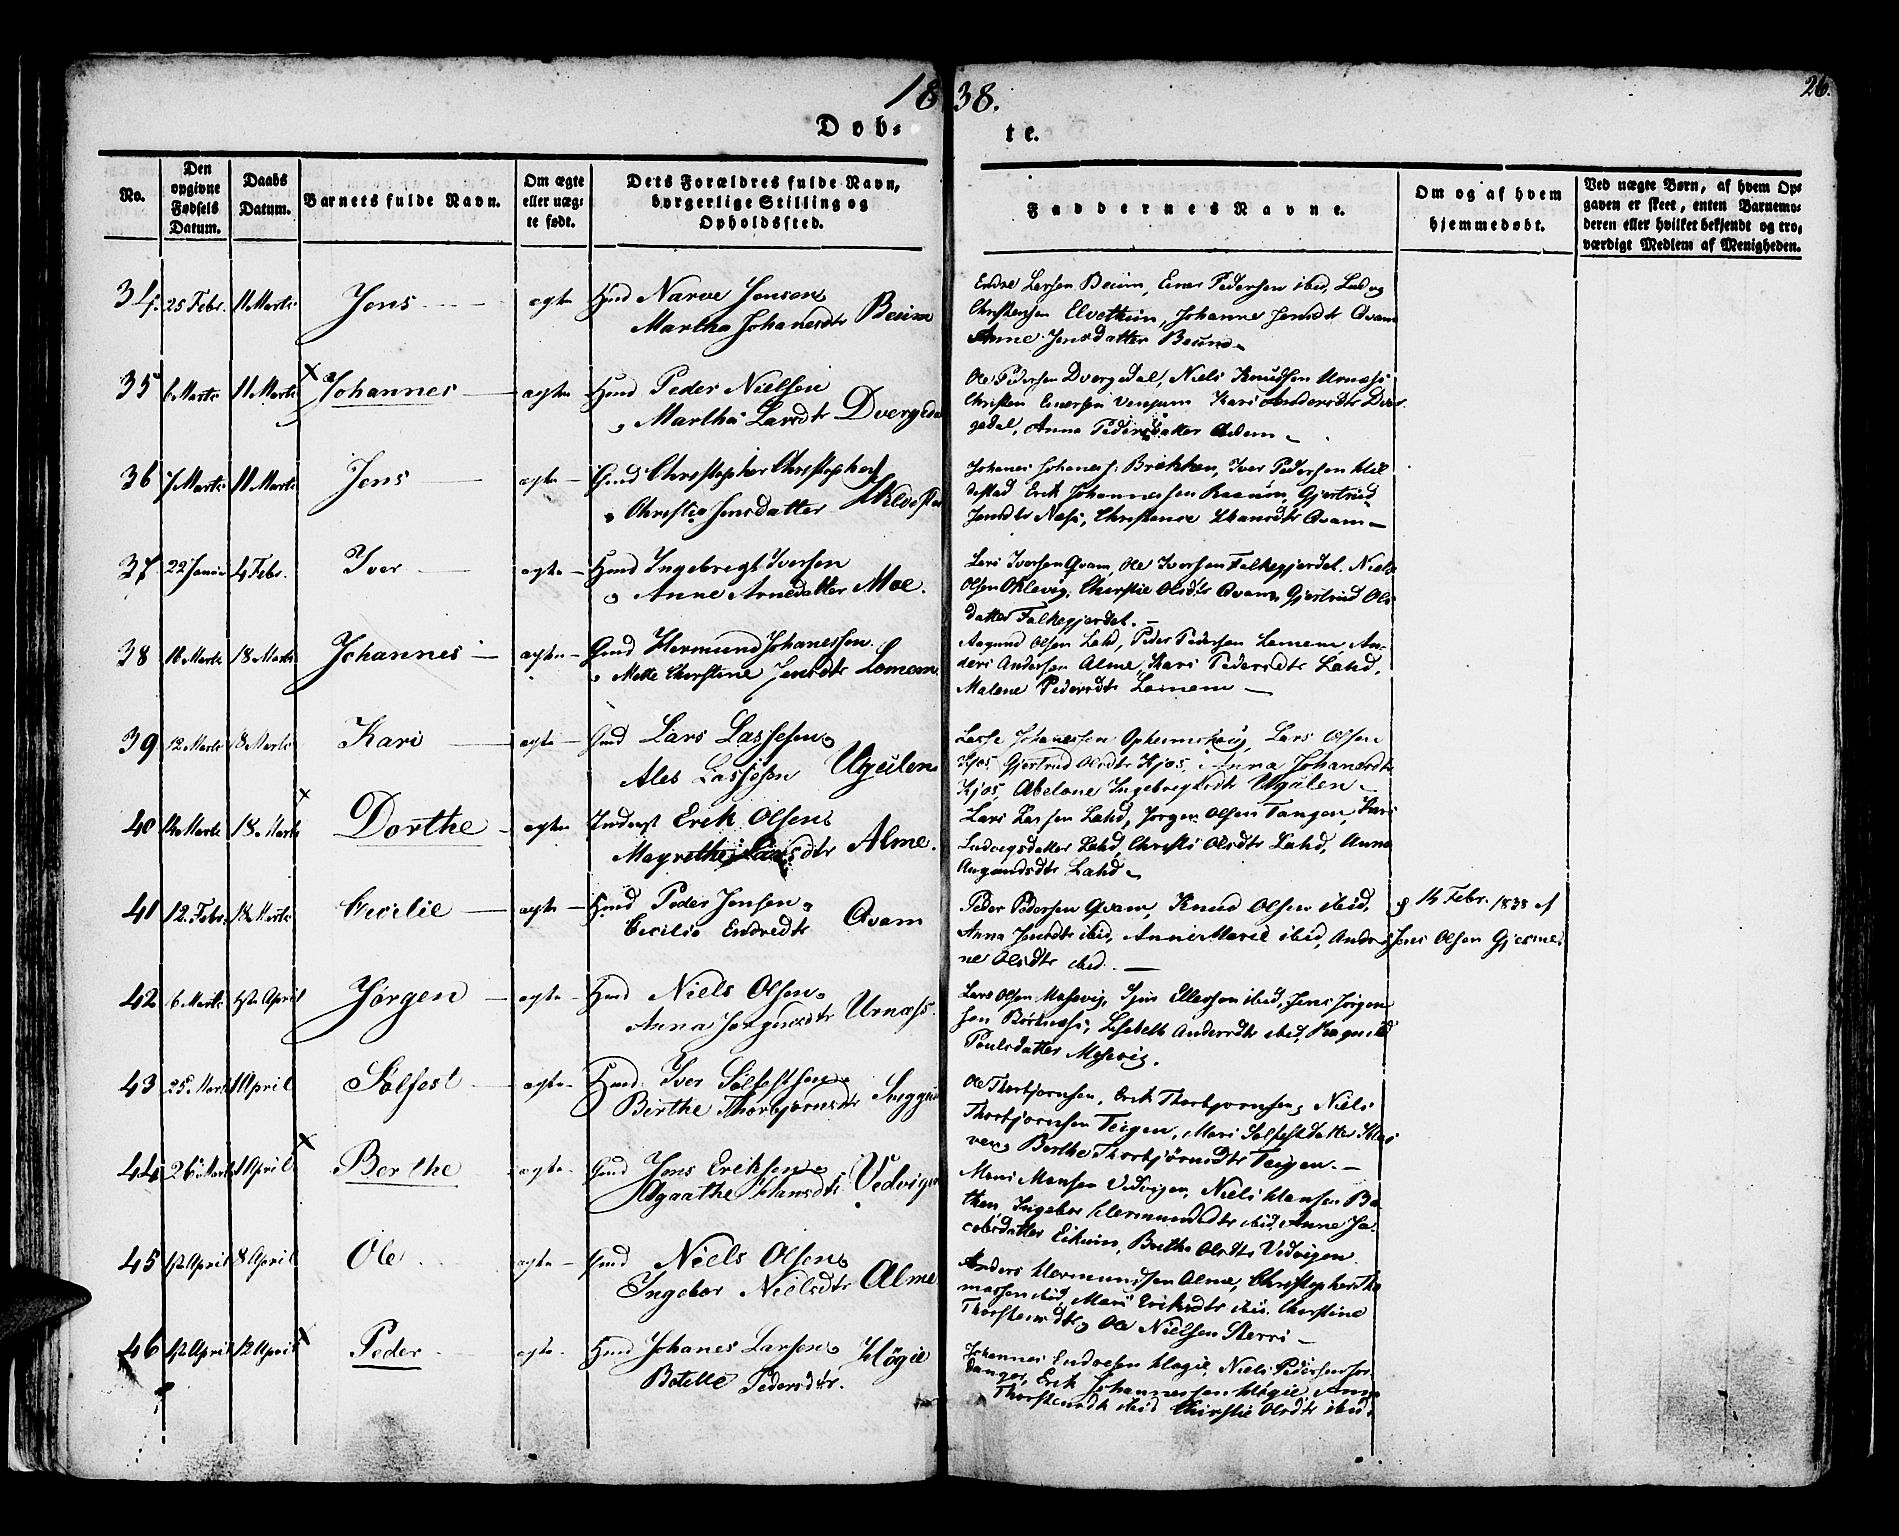 1838.
26.
Døb-
te.
No.
Den opgivne Fødsels Datum.
Daabs Datum.
Barnets fulde Navn.
Om ægte eller uægte født.
Dets Forældres fulde Navn, borgerlige Stilling og Opholdssted.
Faddernes Navne.
Om og af hvem hjemmedøbt.
Ved uægte Børn, af hvem Opgaven er skeet, enten Barnemoderen eller hvilket bekjendt og troværdigt Medlem af Menigheden.
34. 25 Febr. 11 Marts Jens ægte Hmd Narve Jensen
Martha Johanesdtr Beium
Endre Larsen Beium, Einar Pedersen ibid, Ludvig
Christensen Elvethun, Johanne Jensdtr Qvam
Anne Jensdatter Beium
35 6 Marts 11 Marts Johannes ægte Hmd Peder Nielsen
Martha Larsdtr Dvergedal
Ole Pedersen Dvergedal, Niels Knudsen Urnæss
Christen Einersen Venjum Kari Andersdtr Dver
gedal, Anna Pedersdatter
36 7 Marts 11 Marts Jens ægte Hmd Christopher Christophers
Christie Jensdatter
Johanes Johaness: Brækken, Iver Pedersen
Erik Johannesen Gjertrud
Jensdtr Næss, Christense Qvam
37 22 Januar 4 Febr. Iver ægte Hmd Ingebregt Iversen
Anne Arnedatter Moe.
Lars Iversen Qvam, Ole Iversen Falkegjerdet, Niels
Olsen Oklevig, Christie Olsdtr Qvam, Gjertrud Ols
datter Falkegjerdet.
38 18 Marts Johannes ægte Hmd Hermund Johanessen
Mette Christine Jensdtr Lemem
Aagund Olsen Lahd, Peder Pedersen Lemem, An-
ders Andersen Alme, Kari Pedersdtr Lahd,
Malene Pedersdtr Lemem
39 12 Marts 18 Marts Kari ægte Hmd Lars Lassesen
Ales Lassesen Ugulen
Lasse Johanessen Opheimshaug, Lars Olsen
Kjos, Gjertrud Olsdtr Kjos, Anna Johanesdtr
Kjos, Abelone Ingebregtsdtr Ugulen
40 14 Marts 18 Marts Dorthe ægte Inderst Erik Olsen
Magrethe Larsdtr Alme.
Lars Larsen Lahd, Jørgen Olsen Tangen, Kari
Ludvigsdatter Lahd, Christi Olsdtr Lahd, Anna
Augundsdtr Lahd
41 12. Febr. Marts Cecilie ægte Hmd Peder Jensen
Cecilie Endredtr Qvam
Peder Pedersen Qvam, Knud Olsen ibid,
Anna Jensdtr ibid, Anne Marie ibid, Andri-
ne Olsdtr ibid.
Febr. 1838 af
Jens Olsen
42 6 Marts April Jørgen ægte Hmd Niels Olsen
Anna Jørgensdtr Urnæss.
Lars Olsen Mosevig, Sjur Ellersen ibid, Jens Jørgen-
sen Børtnæss, Lisabeth Andersdtr ibid, Ragnild
Poulsdatter Mosevig.
43 25 Marts 1 April Sølfest ægte Hmd Iver Sølfestsen
Berthe Thorbjørnsdtr
Ole Thorbjørnsen, Erik Thorbjørnsen, Niels
Thorbjørnsen Teigen, Mari Sølfestdatter
Berthe Thorbjørnsdtr Teigen.
44 26 Marts 1 April Berthe ægte Hmd Jens Eriksen
Agaathe Hansdtr Vedvigen
Mons Monsen Vedvigen, Niels Hansen Ba
then, Ingebor Hermundsdtr ibid, Anne Ja-
cobsdatter Eikum, Berthe Olsdtr Vedvigen
45 April 8 April Ole ægte Hmd Niels Olsen
Ingebor Nielsdtr Alme
Anders Hermundsen Alme, Christopher Tho
massen ibid, Mari Eriksdtr ibid. Christine
Thorstensdtr, Ole Nielsen Skerri
46 April 12 April Peder ægte Hmd Johanes Larsen Høgie
Botille Pedersdtr.
Johannes Endresen Høgie, Niels Pedersen Sor
danger, Erik Johannessen Høgie, Anne
Thorstensdtr ibid Christie Olsdtr ibid.